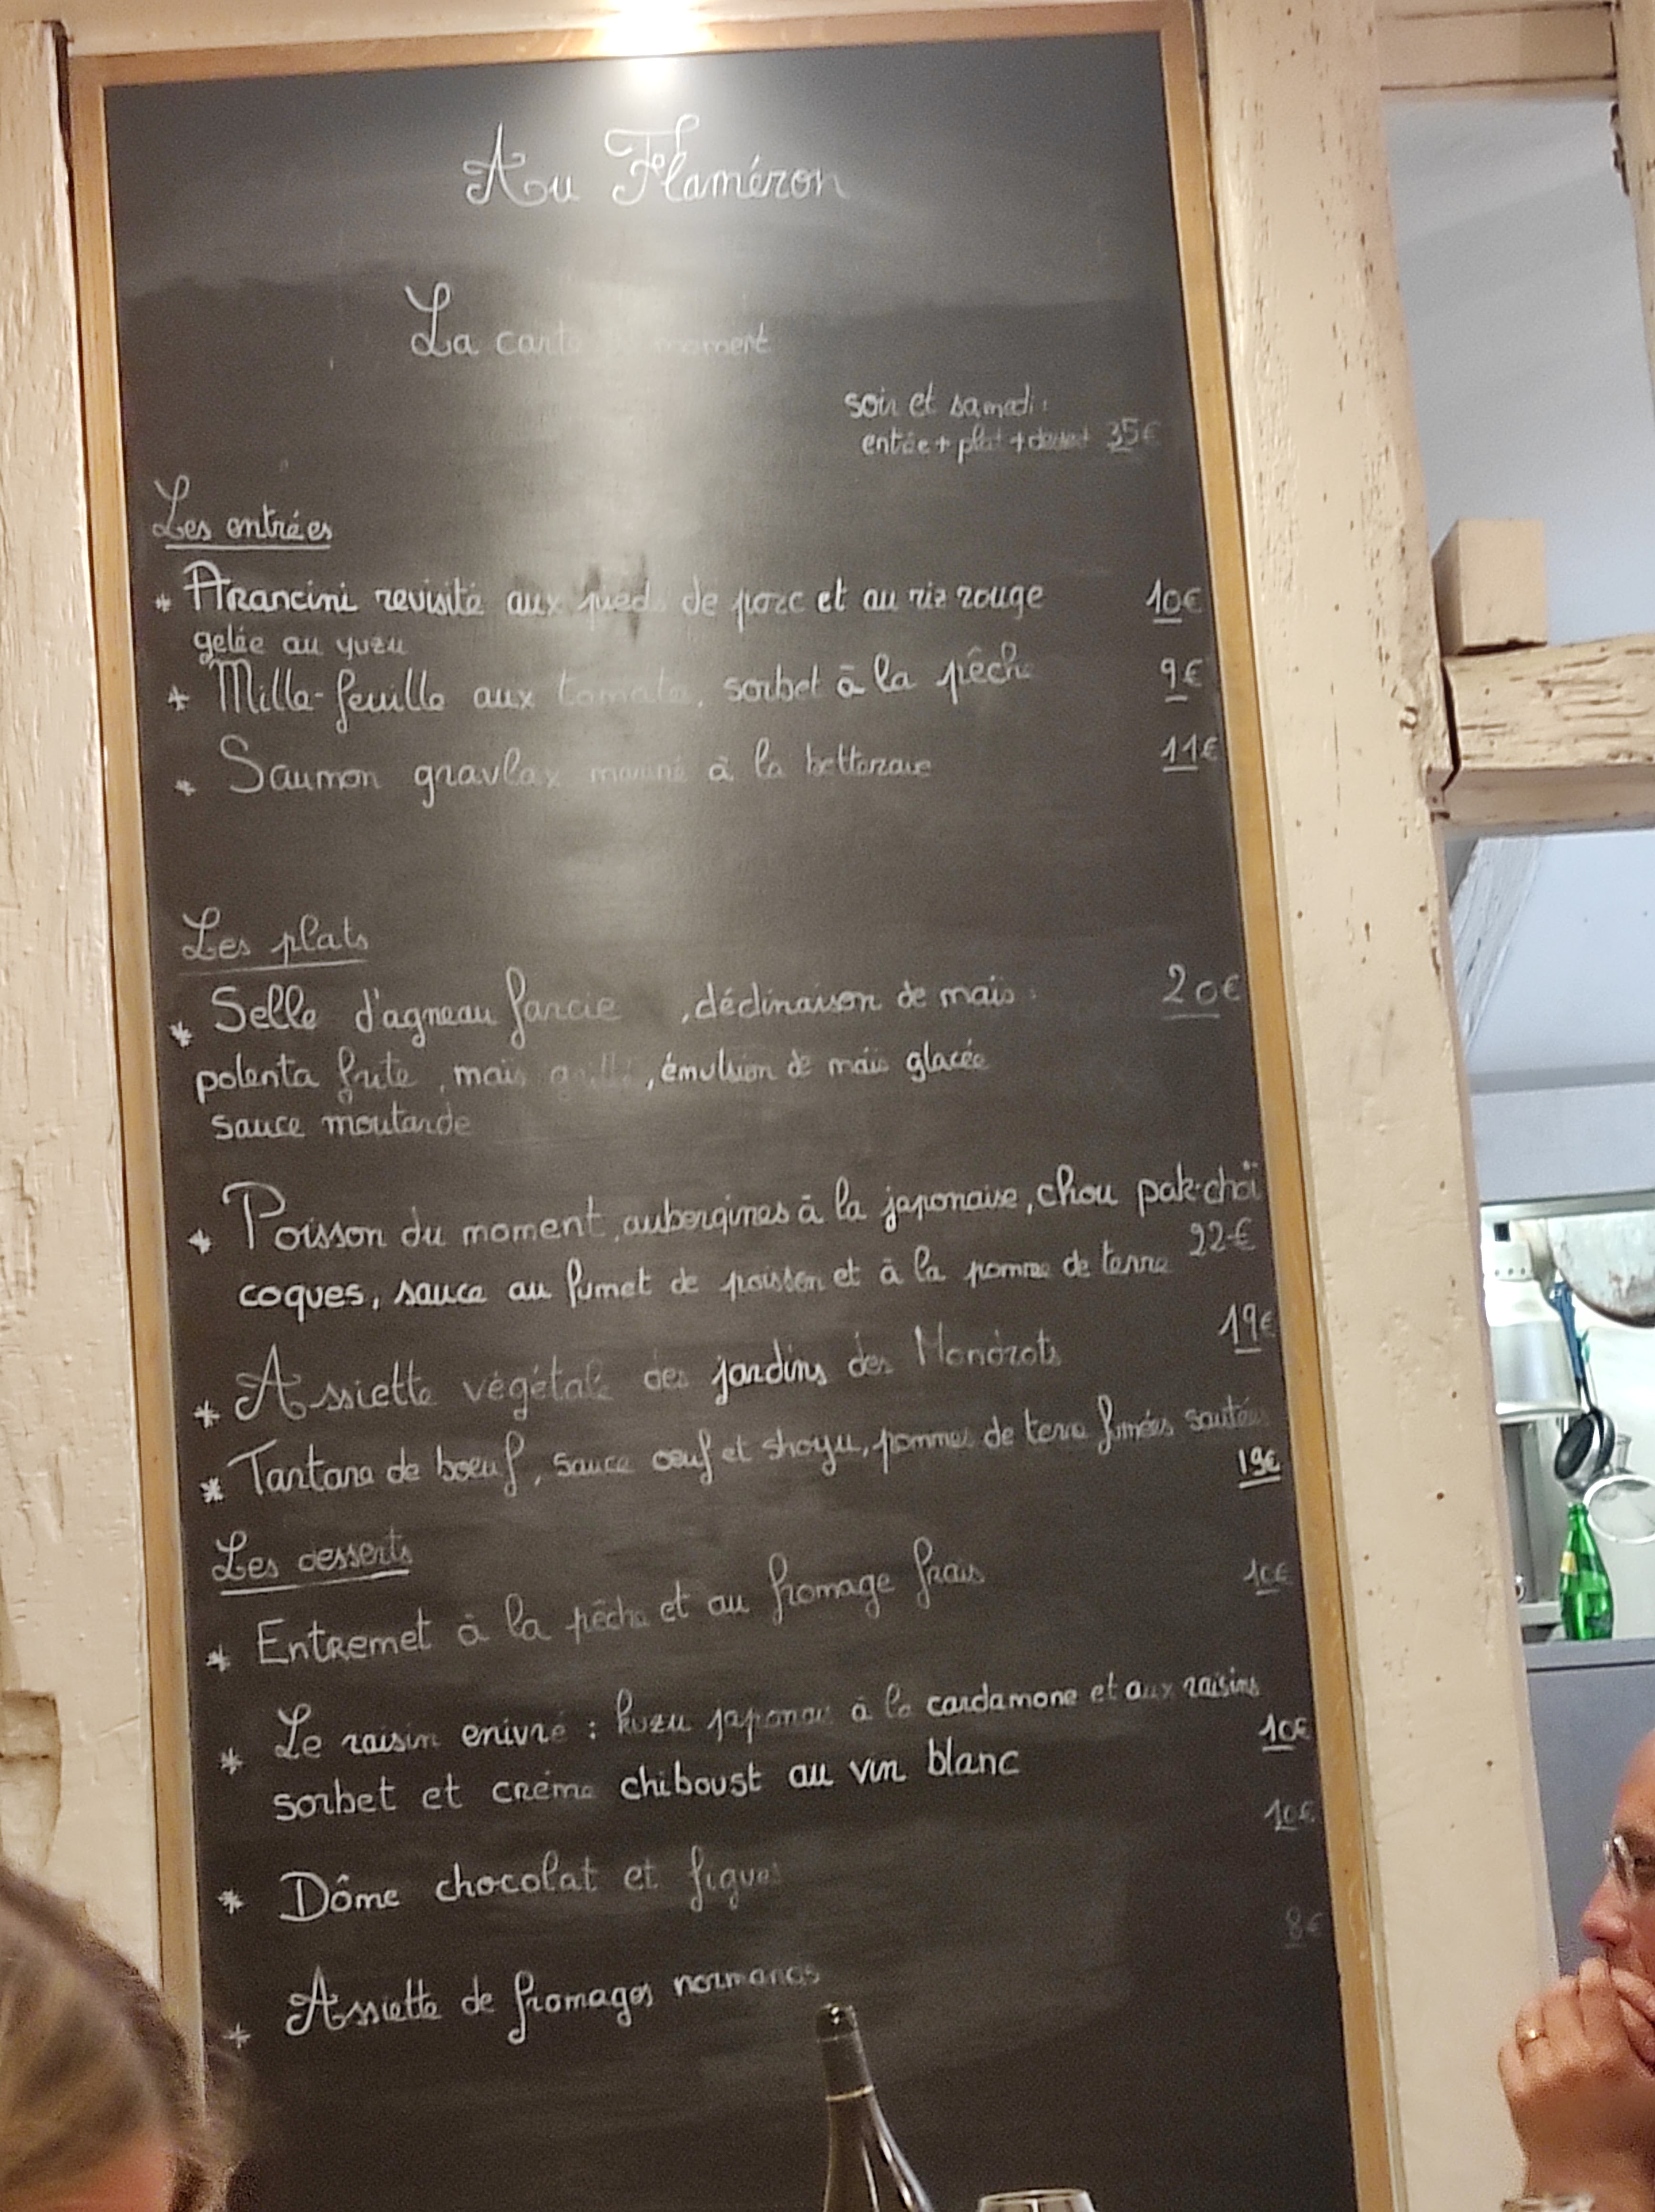 Au Flaméron
La carte moment
soir et samedi :
entrée + plat + dessert 35€
Les entrées
* Arancini revisité aux pieds de porc et au riz rouge 10€
gelée au yuzu
* Mille-feuille aux tomate, sorbet à la pêche 9€
* Saumon gravlax mariné à la betterave 11€
Les plats
* Selle d'agneau farcie , déclinaison de maïs : 20€
polenta frite, maïs grillé, émulsion de maïs glacée
sauce moutarde
* Poisson du moment, aubergines à la japonaise, chou pak-choï
coques, sauce au fumet de poisson et à la pomme de terre 22€
* Assiette végétale des jardins des Mondrots 19€
* Tartare de boeuf, sauce oeuf et shoyu, pommes de terre fumées sautées
19€
Les desserts
* Entremet à la pêche et au fromage frais 10€
* Le raisin enivré : kuzu japonais à la cardamone et aux raisins
sorbet et crème chiboust au vin blanc 10€
* Dôme chocolat et figues 10€
* Assiette de fromages normands 8€